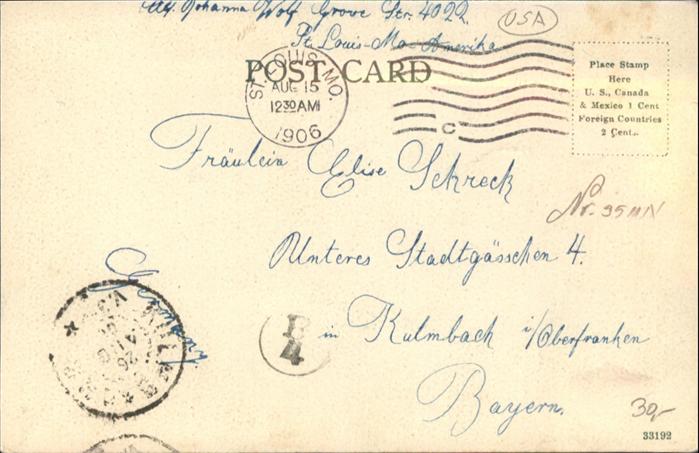 Johanna Wolf Grove Str. 4022.
St. Louis-Mo-Amerika
USA
POST CARD
ST. LOUIS, MO.
AUG 15
12 30 AM
1906
C
Place Stamp
Here
U. S., Canada
& Mexico 1 Cent
Foreign Countries
2 Cent..
Fräulein Elise Schreck
Nr.
Unteres Stadtgässchen 4.
Germany.
B
4
in Kulmbach i/Oberfranken
Bayern.
30,-
33192